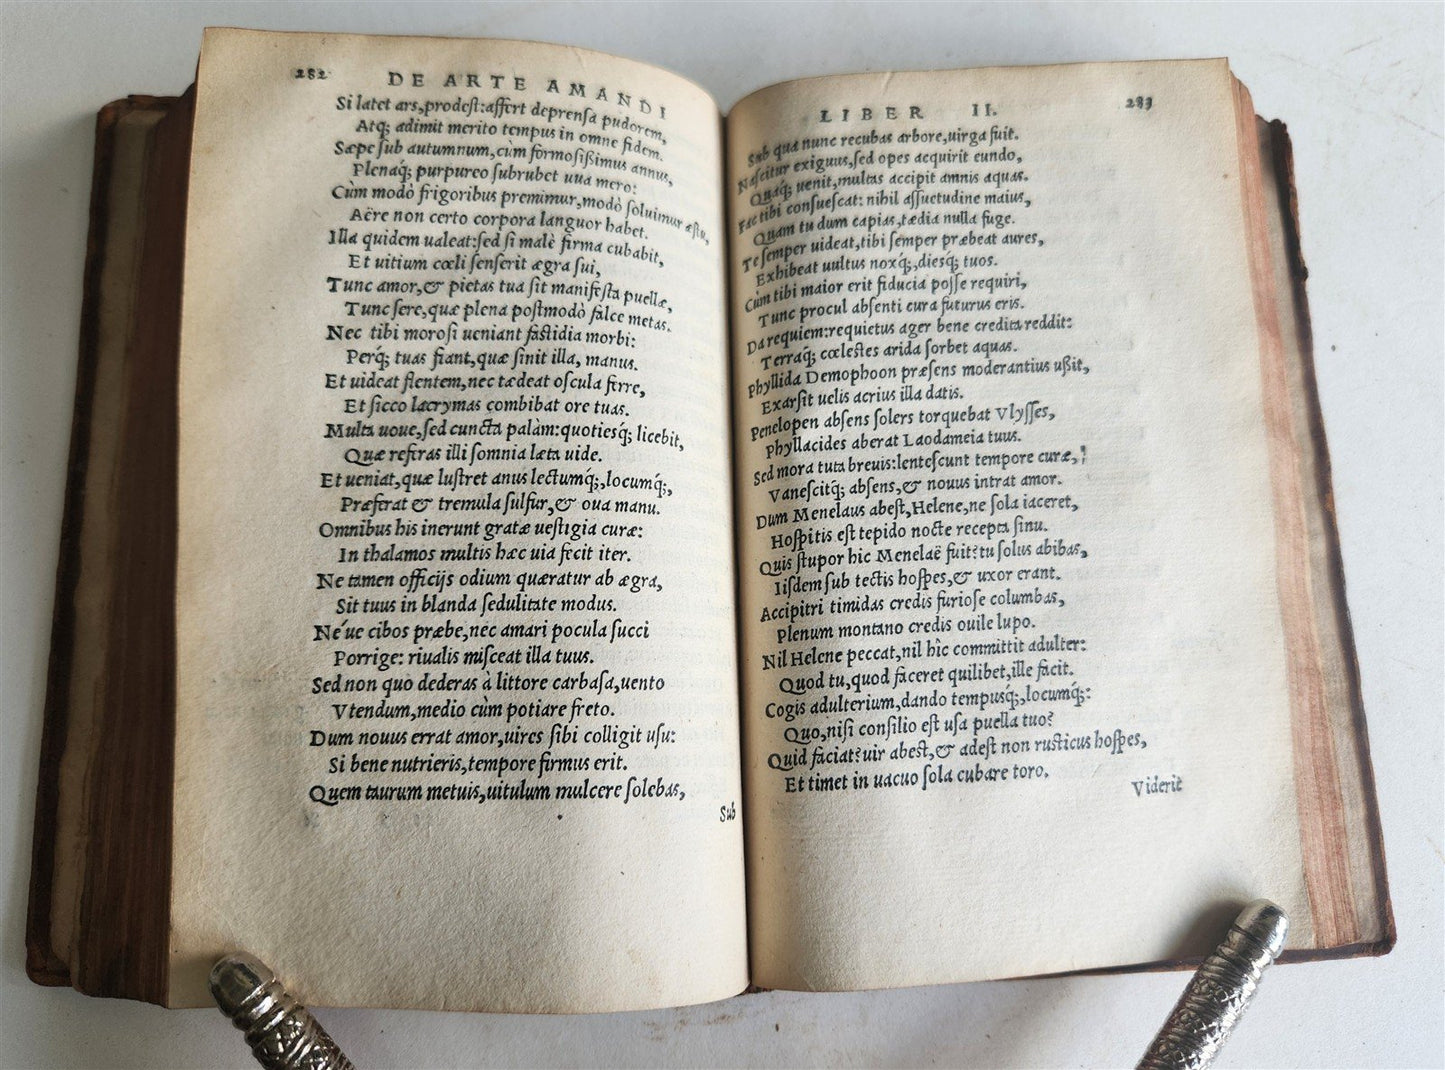 282
DE ARTE AMANDI
Si latet ars,prodest:affert deprensa pudorem,
Atq; adimit merito tempus in omne fidem.
Sæpe sub autumnum,cùm formosißimus annus,
Plenaq́; purpureo subrubet uua mero:
Cùm modò frigoribus premimur,modò soluimur æstu,
Aëre non certo corpora languor habet.
Illa quidem ualeat:sed si malè firma cubabit,
Et uitium cœli senserit ægra sui,
Tunc amor,& pietas tua sit manifesta puellæ,
Tunc sere,quæ plena postmodò falce metas.
Nec tibi morosi ueniant fastidia morbi:
Perq́; tuas fiant,quæ sinit illa, manus.
Et uideat flentem,nec tædeat oscula ferre,
Et sicco lacrymas combibat ore tuas.
Multa uoue,sed cuncta palàm:quotiesq́; licebit,
Quæ referas illi somnia læta uide.
Et ueniat,quæ lustret anus lectumq́;,locumq́;,
Præferat & tremula sulfur,& oua manu.
Omnibus his inerunt gratæ uestigia curæ:
In thalamos multis hæc uia fecit iter.
Ne tamen officijs odium quæratur ab ægra,
Sit tuus in blanda sedulitate modus.
Ne'ue cibos præbe,nec amari pocula succi
Porrige: riualis misceat illa tuus.
Sed non quo dederas à littore carbasa,uento
Vtendum,medio cùm potiare freto.
Dum nouus errat amor,uires sibi colligit usu:
Si bene nutrieris,tempore firmus erit.
Quem taurum metuis,uitulum mulcere solebas,
Sub
LIBER II.
283
Sub qua nunc recubas arbore,uirga fuit.
Nascitur exiguus,sed opes acquirit eundo,
Quaq́; uenit,multas accipit amnis aquas.
Fac tibi consuescat: nihil assuetudine maius,
Quam tu dum capias,tædia nulla fuge.
Te semper uideat,tibi semper præbeat aures,
Exhibeat uultus noxq́;,diesq́; tuos.
Cùm tibi maior erit fiducia posse requiri,
Tunc procul absenti cura futurus eris.
Da requiem:requietus ager bene credita reddit:
Terraq́; cœlestes arida sorbet aquas.
Phyllida Demophoon præsens moderantius ußit,
Exarsit uelis acrius illa datis.
Penelopen absens solers torquebat Vlysses,
Phyllacides aberat Laodameia tuus.
Sed mora tuta breuis:lentescunt tempore curæ,
Vanescitq́; absens,& nouus intrat amor.
Dum Menelaus abest,Helene,ne sola iaceret,
Hospitis est tepido nocte recepta sinu.
Quis stupor hic Menelaë fuit?tu solus abibas,
Iisdem sub tectis hospes,& uxor erant.
Accipitri timidas credis furiose columbas,
Plenum montano credis ouile lupo.
Nil Helene peccat,nil hîc committit adulter:
Quod tu,quod faceret quilibet,ille facit.
Cogis adulterium,dando tempusq́;,locumq́;:
Quo,nisi consilio est usa puella tuo?
Quid faciat?uir abest,& adest non rusticus hospes,
Et timet in uacuo sola cubare toro.
Viderit